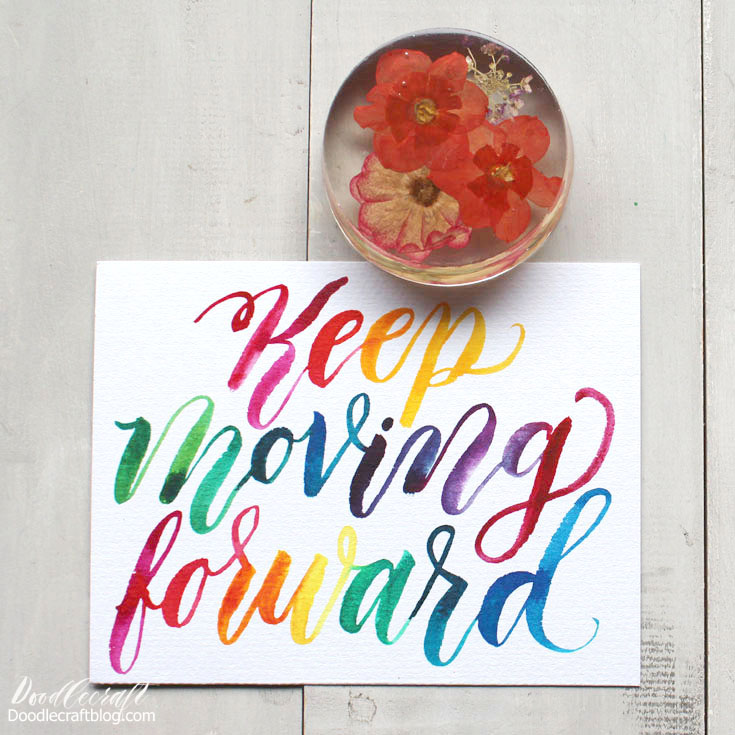 Keep
moving
forward
Doodlecraft
Doodlecraftblog.com